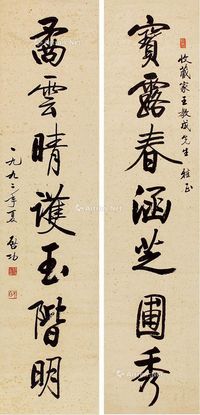 收藏家王教成先生雅正
寶露春涵芝圃秀
矞雲晴護玉階明
一九九二年夏 啟功